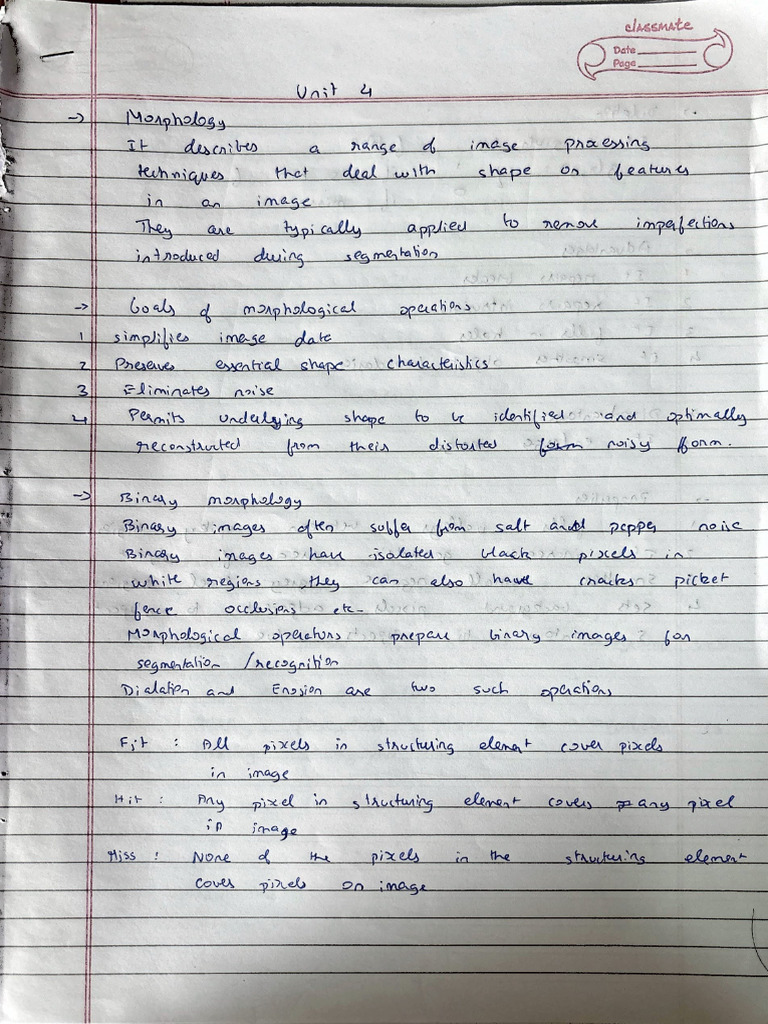 classmate
Date
Page
Unit 4
-> Morphology
It describes a range of image processing
techniques that deal with shape or features
in an image
They are typically applied to remove imperfections
introduced during segmentation
-> Goals of morphological operations
1 simplifies image data
2 Preserves essential shape characteristics
3 Eliminates noise
4 Permits underlying shape to be identified and optimally
reconstructed from their distorted form noisy form.
-> Binary morphology
Binary images often suffer from salt and pepper noise
Binary images have isolated black pixels in
white regions they can also have cracks picket
fence occlusions etc-
Morphological operators prepare binary images for
segmentation / recognition
Dialation and Erosion are two such operations
Fit : All pixels in structuring element cover pixels
in image
Hit : Any pixel in structuring element covers any pixel
in image
Miss : None of the pixels in the structuring element
cover pixels on image